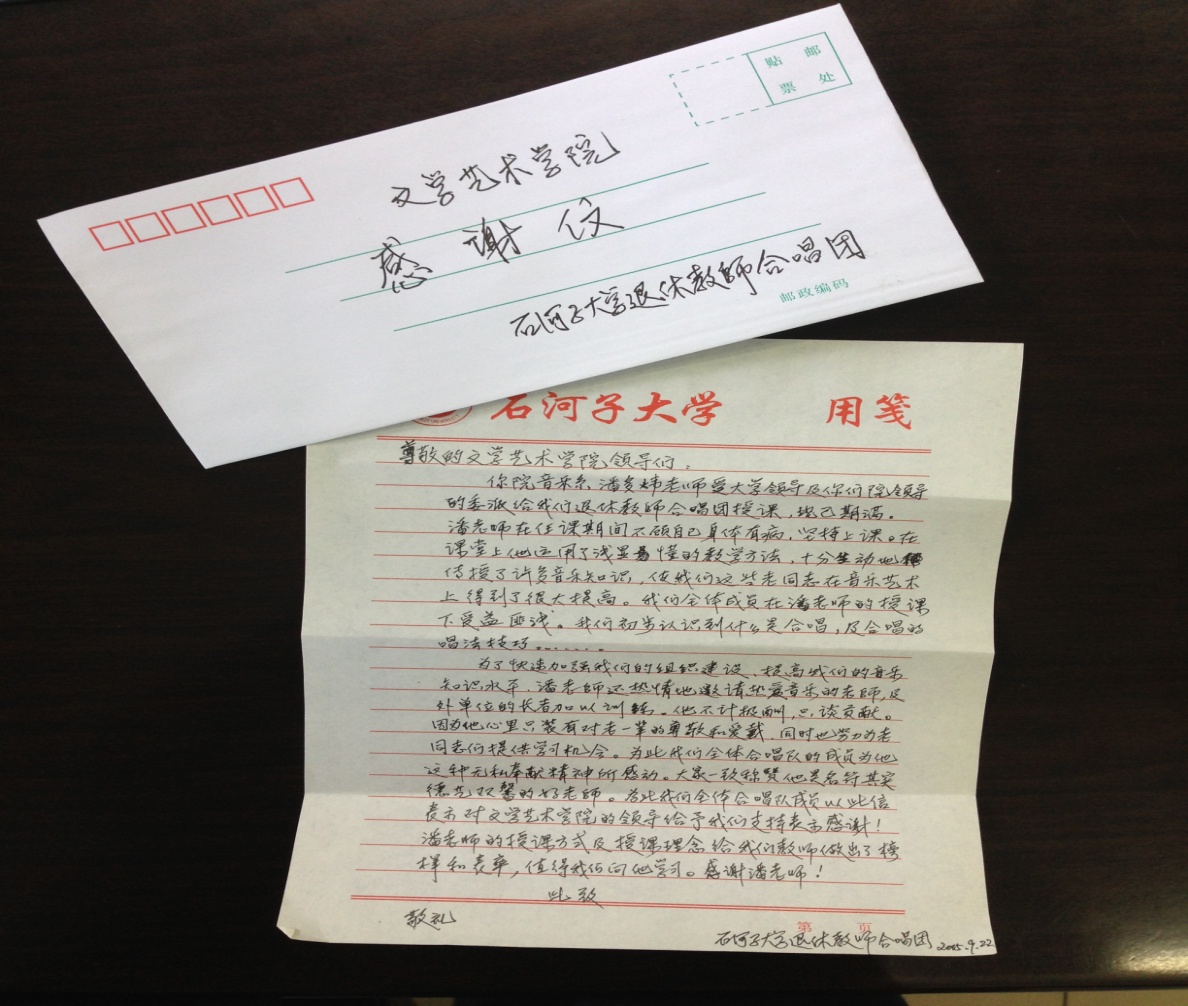 贴 邮
票 处
文学艺术学院
感谢信
石河子大学退休教师合唱团
邮政编码
石河子大学 用笺
尊敬的文学艺术学院领导们:
你院音乐系潘多炜老师受大学领导及你们院领导
的委派给我们退休教师合唱团授课,现已期满。
潘老师在任课期间不顾自己身体有病,坚持上课。在
课堂上他运用了浅显易懂的教学方法,十分生动地
传授了许多音乐知识,使我们这些老同志在音乐艺术
上得到了很大提高。我们全体成员在潘老师的授课
下受益匪浅。我们初步认识到什么是合唱,及合唱的
唱法技巧……。
为了快速加强我们的组织建设、提高我们的音乐
知识水平,潘老师还热情地邀请热爱音乐的老师,及
外单位的长者加以训练。他不计报酬,只谈贡献。
因为他心里只装有对老一辈的尊敬和爱戴,同时也努力为老
同志们提供学习机会。为此我们全体合唱队的成员为他
这种无私奉献精神所感动。大家一致称赞他是名符其实
德艺双馨的好老师。为此我们全体合唱队成员以此信
表示对文学艺术学院的领导给予我们支持表示感谢!
潘老师的授课方式及授课理念给我们教师做出了榜
样和表率,值得我们向他学习。感谢潘老师!
此致
敬礼
第 页
石河子大学退休教师合唱团 2015.9.22